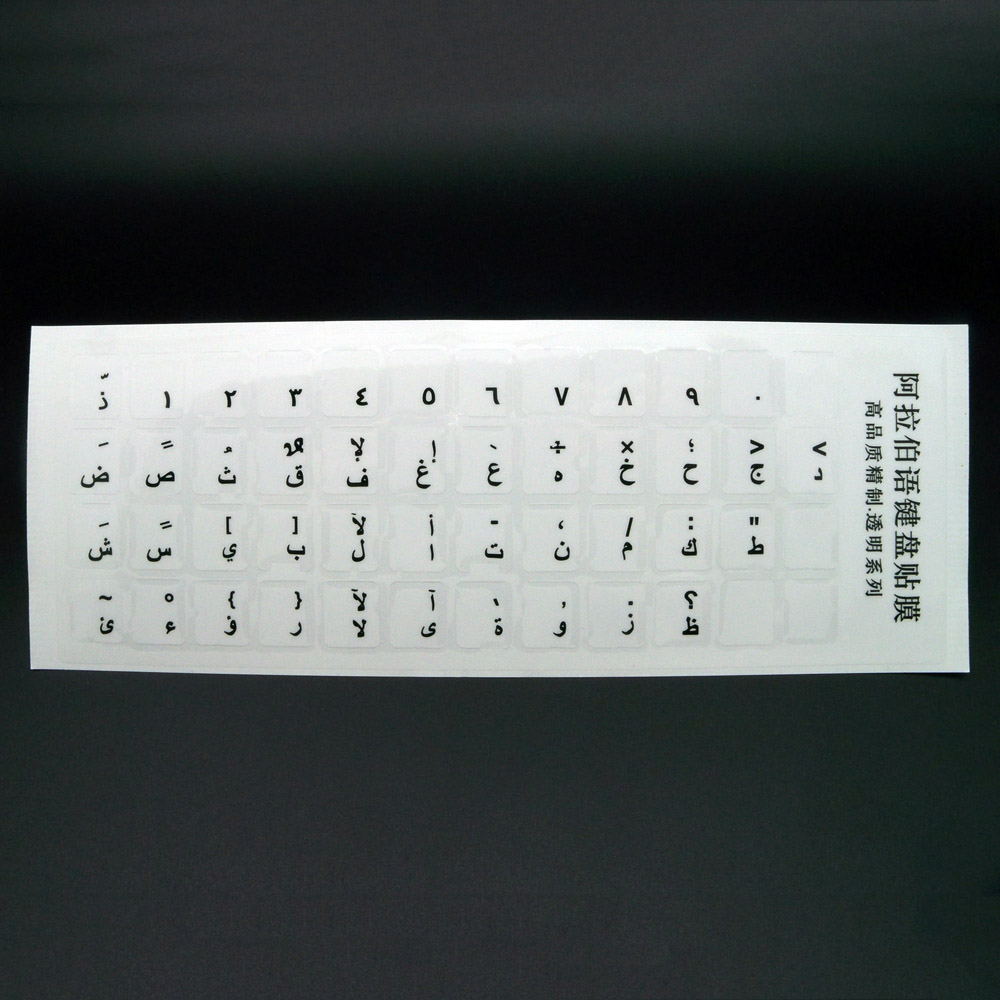 ذ ١ ٢ ٣ ٤ ٥ ٦ ٧ ٨ ٩ ٠
÷ × ؛ > <
ض ص ث ق ف غ ع ه خ ح ج د
[ ] لأ أ ـ ، / : "
ش س ي ب ل ا ت ن م ك ط
~ ْ { } لآ آ ' , . ؟
ئ ء ؤ ر لا ى ة و ز ظ
阿拉伯语键盘贴膜
高品质精制.透明系列